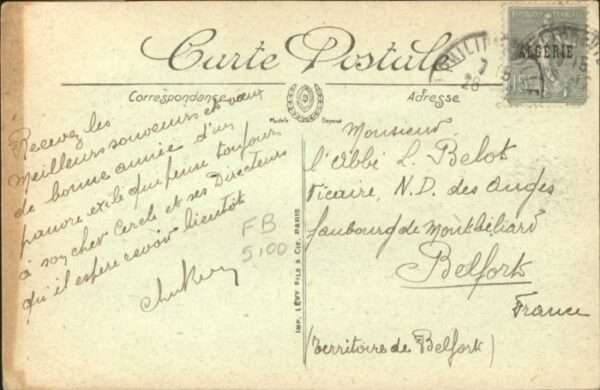 Carte Postale
Correspondance
Adresse
Modèle Déposé
ALGÉRIE
Recevez les
meilleurs souvenirs et vœux
de bonne année d'un
pauvre exilé qui pense toujours
à son cher Cercle et ses Directeurs
qu'il espère revoir bientôt
FB
5,00
IMP. LÉVY FILS & CIE. PARIS
Monsieur
l'Abbé L. Belot
Vicaire, N.D. des Anges
faubourg de Montbéliard
Belfort
France
(Territoire de Belfort)